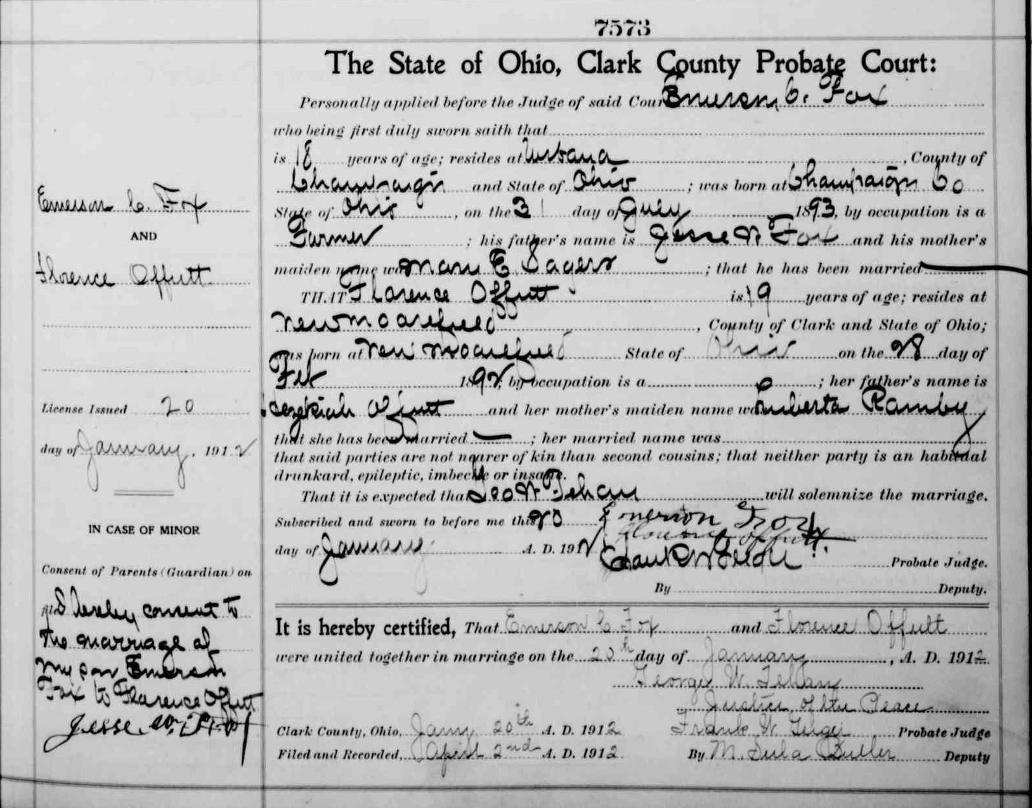 7573
The State of Ohio, Clark County Probate Court:
Personally applied before the Judge of said Court Emerson C. Fox
who being first duly sworn saith that
is 18 years of age; resides at Urbana, County of
Champaign and State of Ohio; was born at Champaign Co
State of Ohio, on the 31 day of July 1893, by occupation is a
Farmer; his father's name is Jesse W Fox and his mother's
maiden name was Mary E Sagers; that he has been married
THAT Florence Offutt is 19 years of age; resides at
New Moorefield, County of Clark and State of Ohio;
was born at New Moorefield State of Ohio on the 28 day of
Feb 1892; by occupation is a; her father's name is
Hezekiah Offutt and her mother's maiden name was Luberta Ramby
that she has been married —; her married name was
that said parties are not nearer of kin than second cousins; that neither party is an habitual
drunkard, epileptic, imbecile or insane.
That it is expected that Geo W Tehan will solemnize the marriage.
Subscribed and sworn to before me this 20 Emerson Fox
Florence Offutt
day of January A. D. 1912 Probate Judge.
By Deputy.
It is hereby certified, That Emerson C Fox and Florence Offutt
were united together in marriage on the 20th day of January, A. D. 1912
George W. Tehan
Justice of the Peace
Clark County, Ohio, Jany 20th A. D. 1912 Frank W. Probate Judge
Filed and Recorded, April 2nd A. D. 1912 By M. Butler Deputy
Emerson C. Fox
AND
Florence Offutt
License Issued 20
day of January, 1912
IN CASE OF MINOR
Consent of Parents (Guardian) on
I hereby consent to
the marriage of
my son Emerson
Fox to Florence Offutt
Jesse W. Fox